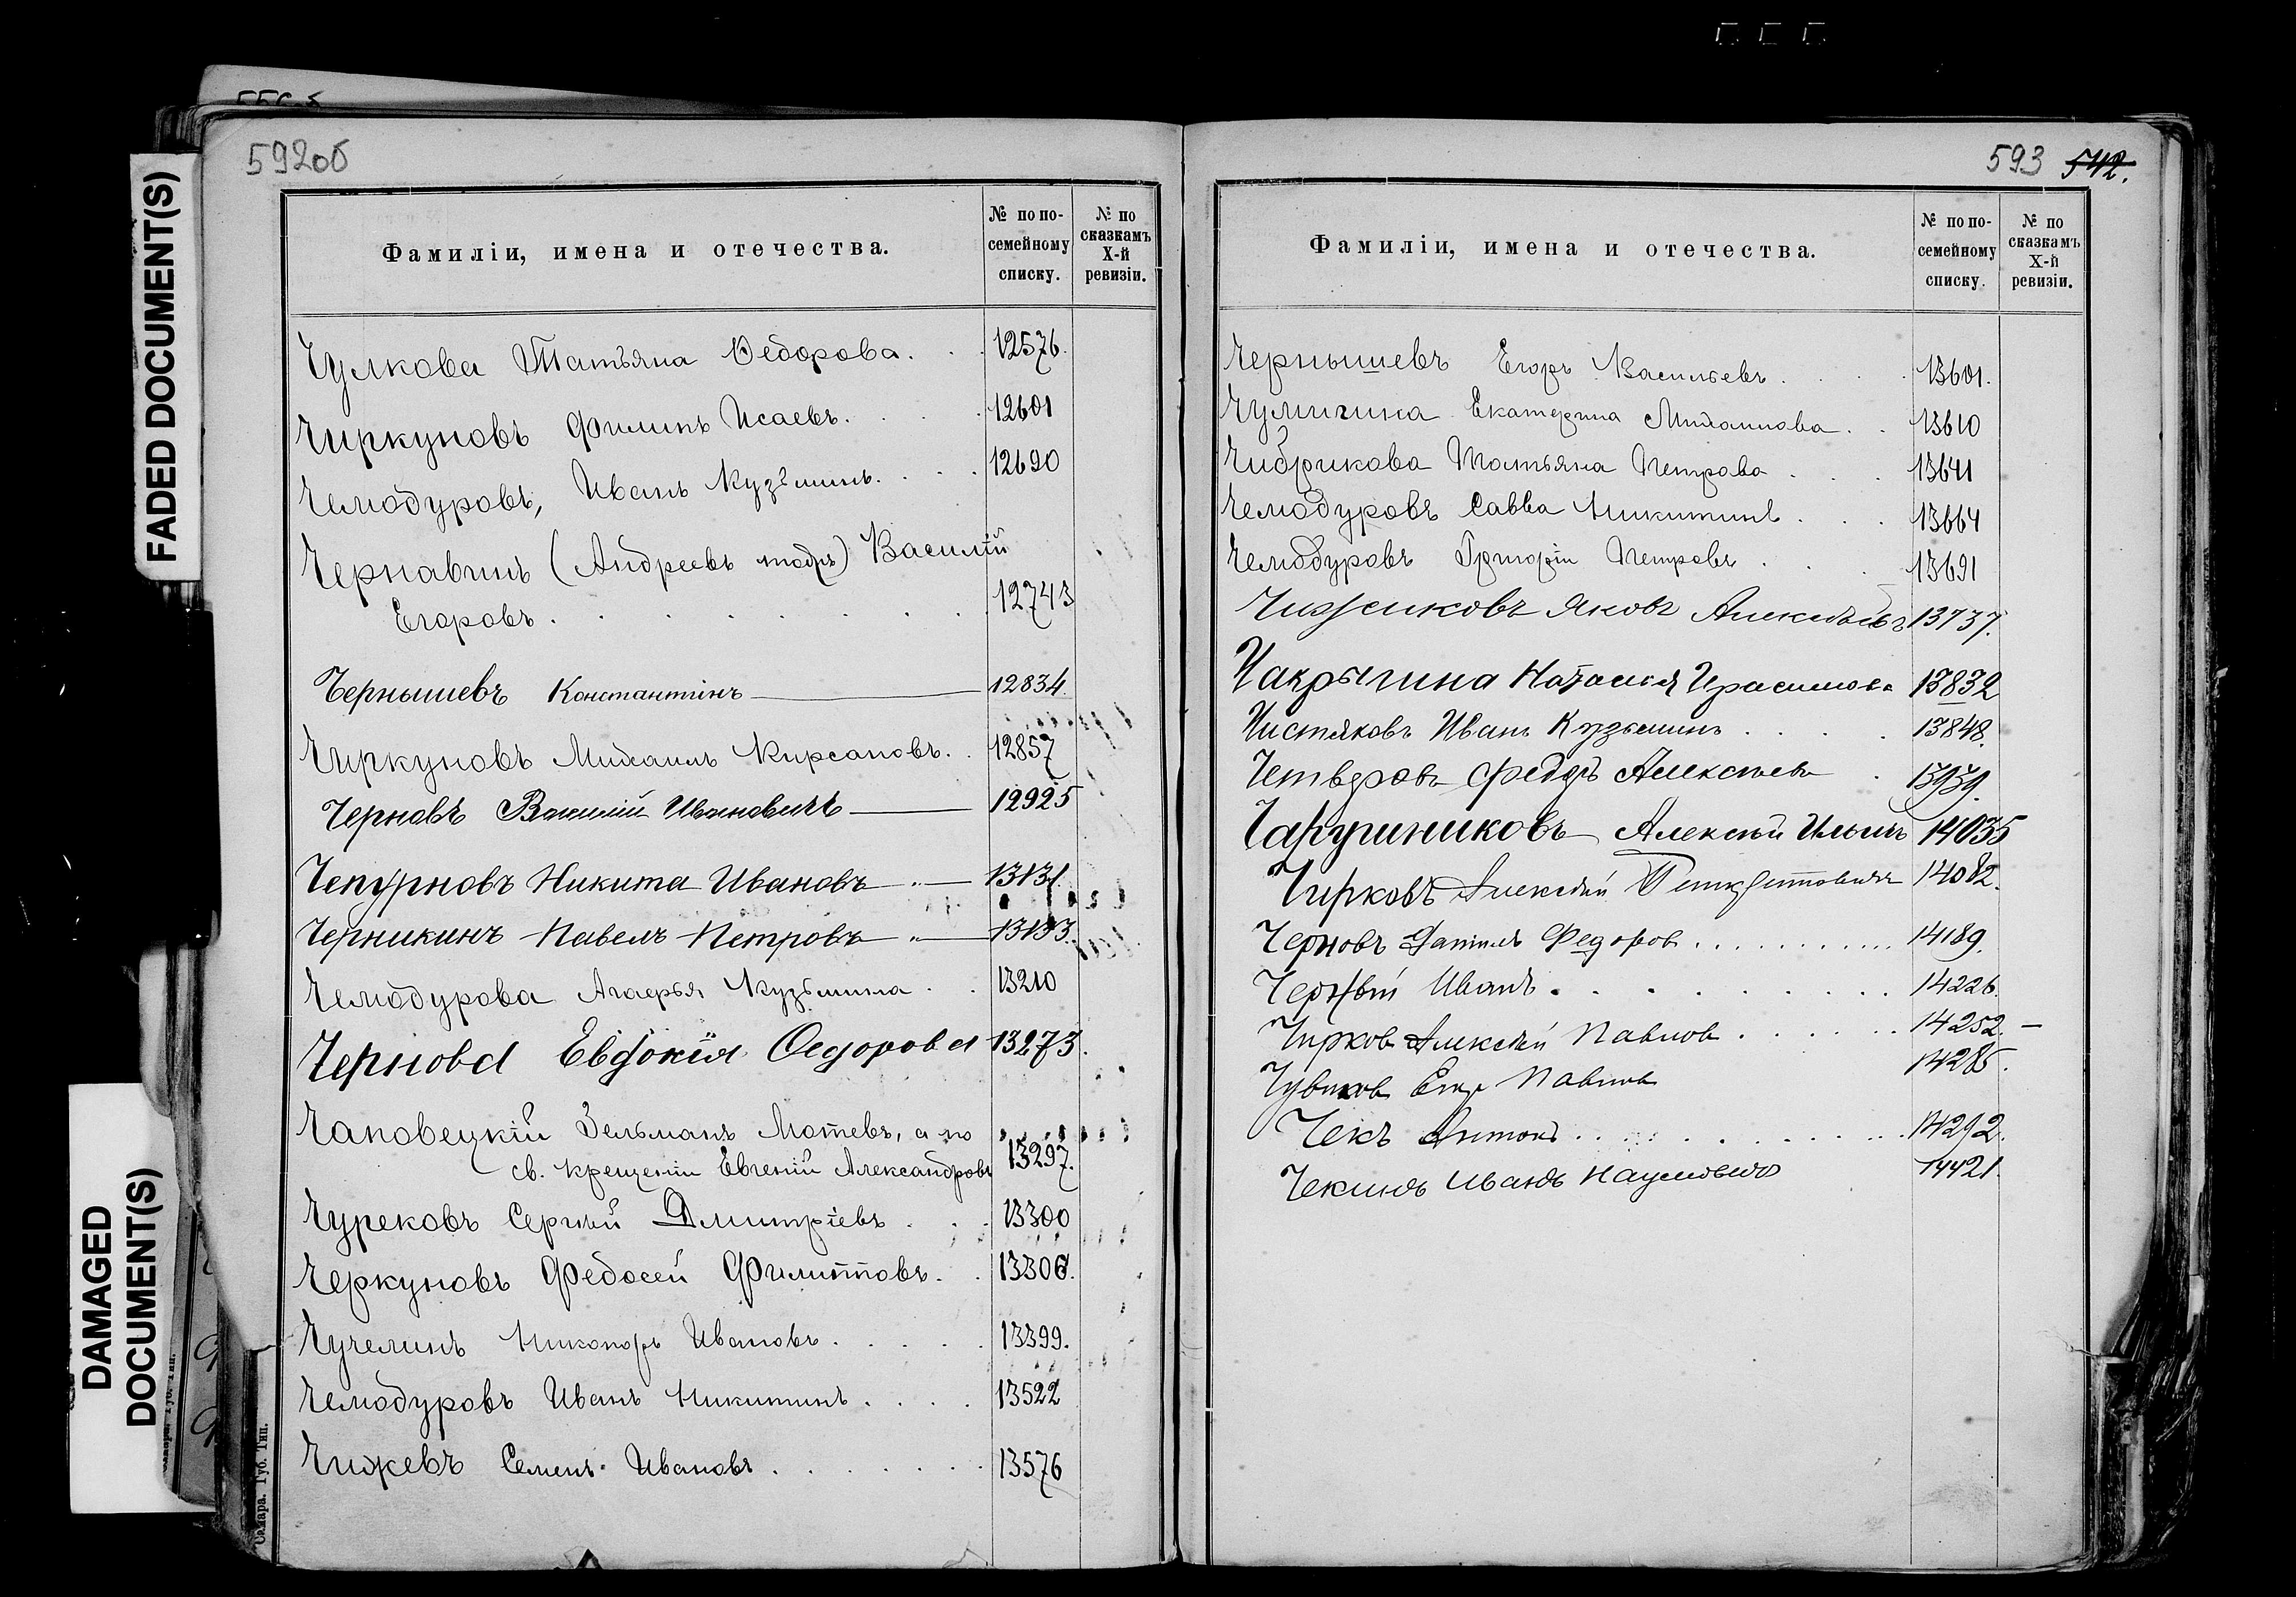 FADED DOCUMENT(S)
DAMAGED
DOCUMENT(S)
592об
Фамиліи, имена и отечества.
№ по по-
семейному
списку.
№ по
сказкамъ
X-й
ревизіи.
Чулкова Татьяна Ѳедорова. . . 12576.
Чиркуновъ Филипъ Исаевъ. . . . 12601
Чемодуровъ, Иванъ Кузьминъ. . . . 12690
Чернавинъ (Андреевъ тожъ) Василій
Егоровъ . . . . . . . . 12743
Чернышевъ Константинъ 12834.
Чиркуновъ Михаилъ Кирсановъ. . 12857
Черновъ Василій Ивановичъ 12925
Чепурновъ Никита Ивановъ 13131.
Черникинъ Павелъ Петровъ 13133.
Чемодурова Агафья Кузьмина . . 13210
Чернова Евдокія Ѳедорова 13273.
Чаповецкій Зельманъ Мотевъ, а по
св. крещеніи Евгеній Александровъ 13297.
Чурековъ Сергѣй Дмитріевъ . . . 13300
Черкуновъ Федосей Филипповъ. . 13306.
Чучелинъ Никоноръ Ивановъ. . . . . 13399.
Чемодуровъ Иванъ Никитинъ . . . . 13522
Чижевъ Семенъ Ивановъ . . . . . . . 13576
Самара. Губ. Тип.
593 542.
Фамиліи, имена и отечества.
№ по по-
семейному
списку.
№ по
сказкамъ
X-й
ревизіи.
Чернышевъ Егоръ Васильевъ . . . . 13601.
Чумичина Екатерина Михаилова . . 13610
Чибрикова Татьяна Петрова . . . 13641
Чемодуровъ Савва Никитинъ . . . 13664
Чемодуровъ Григорій Петровъ . . . 13691
Чижиковъ Яковъ Алексѣевъ 13737.
Чакрыгина Наталія Герасимова 13832
Чистяковъ Иванъ Кузьминъ . . . . 13848.
Четверовъ Федоръ Алексѣевъ . 13939.
Чарушниковъ Алексѣй Ильинъ 14035
Чирковъ Алексѣй 14082.
Черновъ Данилъ Федоров . . . . . . . . . . . 14189.
Черный Иванъ . . . . . . . . . 14226.
Чирков Алексѣй Павлов . . . . . . 14252. —
Егор Павлов 14285.
Чекъ Антонъ . . . . . . . . . . . . 14292.
Чекинъ Иванъ Наумовичъ 14421.